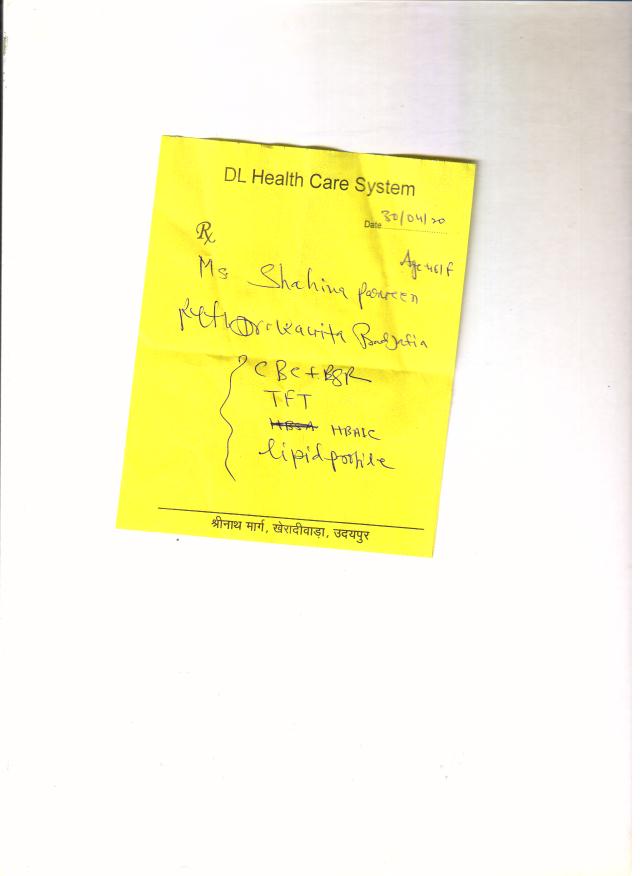 DL Health Care System
Date 30/04/20
Rx
Age 46/F
Ms Shahina parveen
Dr. Kavita Badjatia
CBC + ESR
TFT
HBA1C
lipid profile
श्रीनाथ मार्ग, खेरादीवाड़ा, उदयपुर